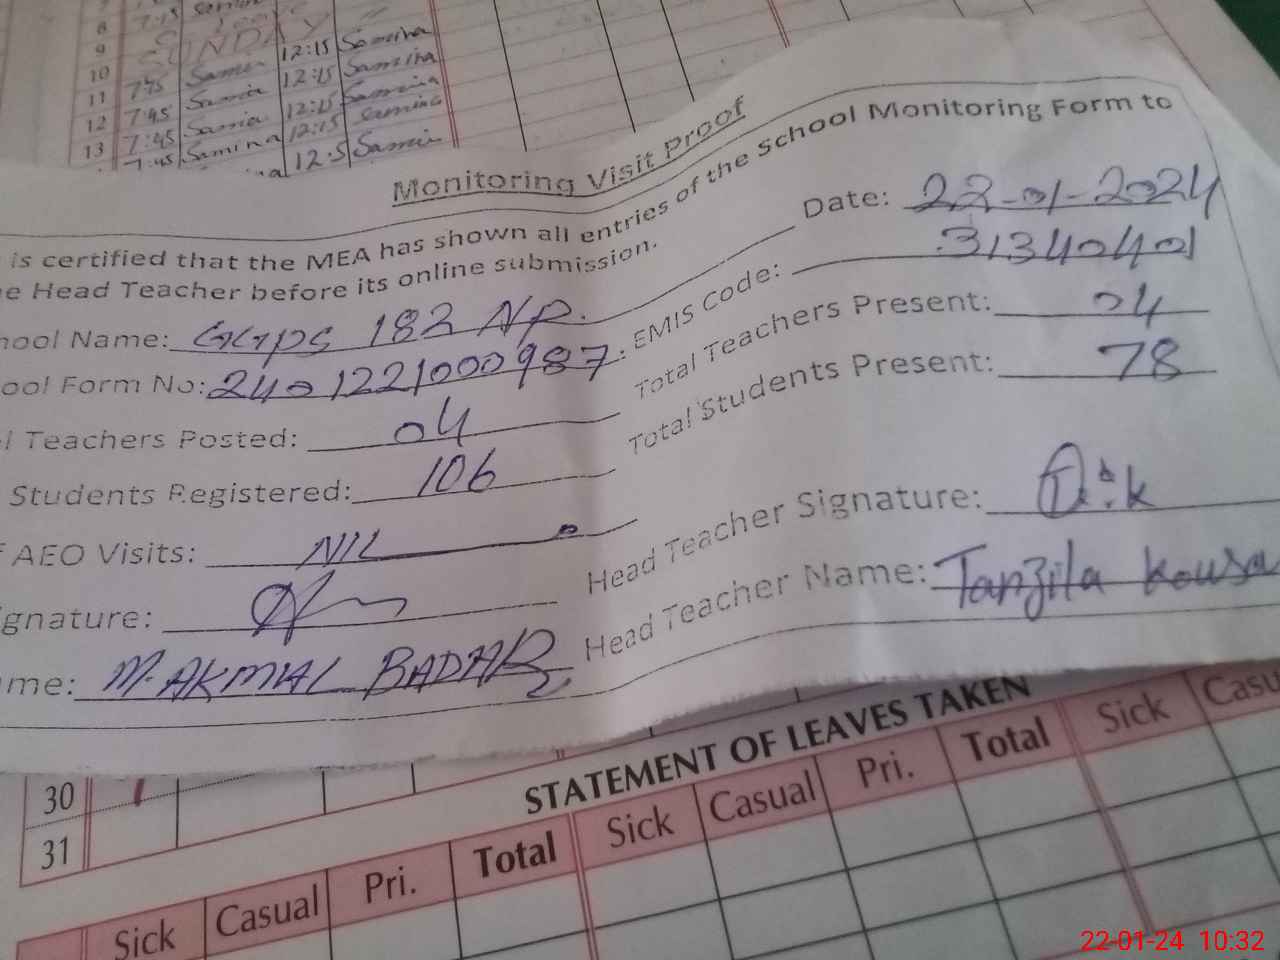 8 7:15
9 SUNDAY
10 7:45 Samina 12:15 Samina
11 7:45 Samina 12:15 Samina
12 7:45 Samina 12:15 Samina
13 7:45 Samina 12:15 Samina
7:45 12:5
Monitoring Visit Proof
is certified that the MEA has shown all entries of the School Monitoring Form to
e Head Teacher before its online submission.
Date: 22-01-2024
hool Name: GGPS 182 NP. EMIS Code: 31340401
ool Form No: 2401221000987 Total Teachers Present: 04
l Teachers Posted: 04 Total Students Present: 78
Students Registered: 106
AEO Visits: NIL Head Teacher Signature:
gnature: Head Teacher Name: Tanzila Kousa
me: M. AKMAL BADAR
30
31
STATEMENT OF LEAVES TAKEN
Sick Casual Pri. Total Sick Casual Pri. Total Sick Casu
22-01-24 10:32